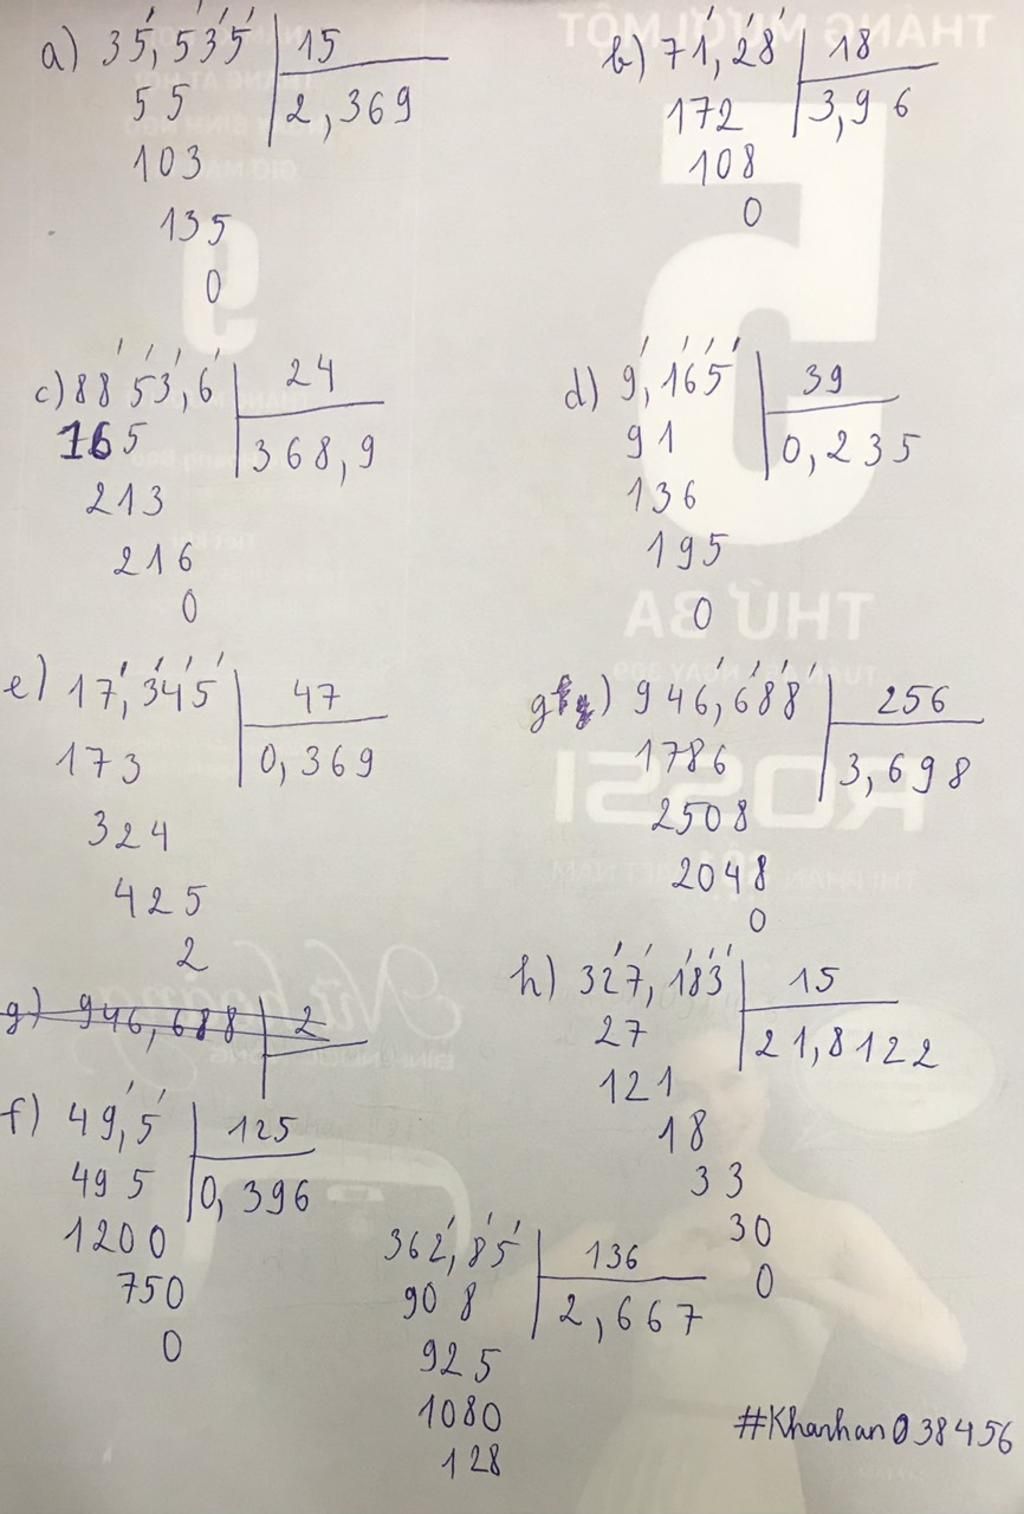 a) 35,535 15
55 2,369
103
135
0
b) 71,28 18
172 3,96
108
0
c) 8853,6 24
165 368,9
213
216
0
d) 9,165 39
91 0,235
136
195
0
e) 17,345 47
173 0,369
324
425
2
g) 946,688 256
1786 3,698
2508
2048
0
g) 946,688 2
h) 327,183 15
27 21,8122
121
18
33
30
0
f) 49,5 125
495 0,396
1200
750
0
362,85 136
908 2,667
925
1080
128
#Khanhan038456
THÁNG MƯỜI MỘT
5
9
THỨ BA
ROSSI